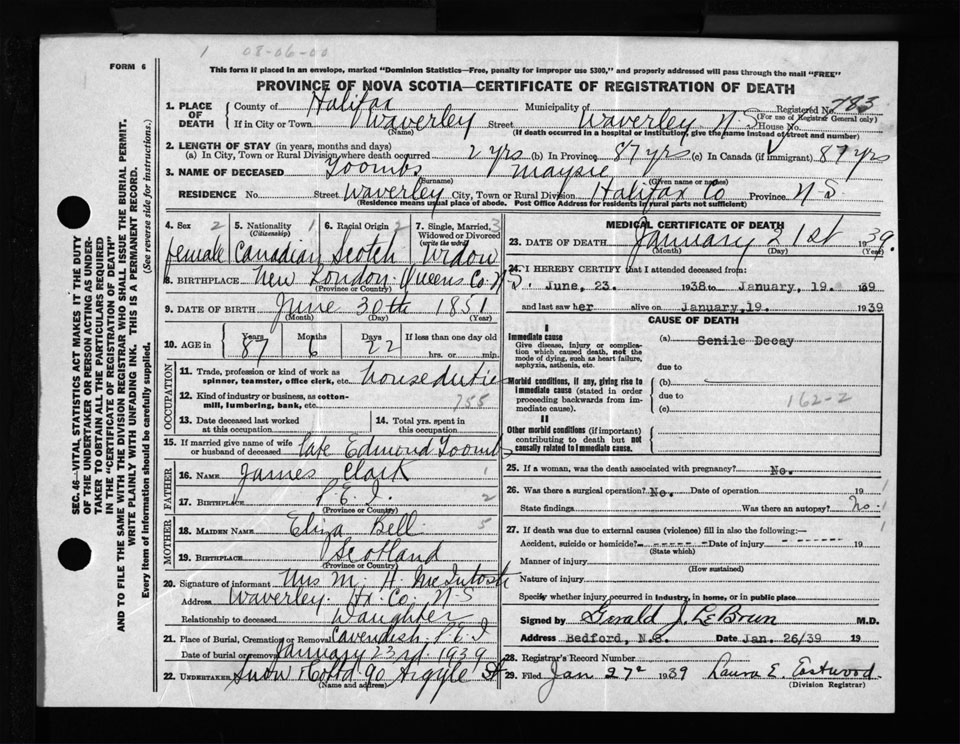 1 08-06-00
FORM 6
This form if placed in an envelope, marked "Dominion Statistics—Free, penalty for improper use $300," and properly addressed will pass through the mail "FREE"
PROVINCE OF NOVA SCOTIA—CERTIFICATE OF REGISTRATION OF DEATH
SEC. 46—VITAL STATISTICS ACT MAKES IT THE DUTY
OF THE UNDERTAKER OR PERSON ACTING AS UNDER-
TAKER TO OBTAIN ALL THE PARTICULARS REQUIRED
IN THE "CERTIFICATE OF REGISTRATION OF DEATH"
AND TO FILE THE SAME WITH THE DIVISION REGISTRAR WHO SHALL ISSUE THE BURIAL PERMIT.
WRITE PLAINLY WITH UNFADING INK. THIS IS A PERMANENT RECORD.
Every item of Information should be carefully supplied. (See reverse side for instructions.)
1. PLACE OF DEATH County of Halifax Municipality of Registered No. 783
(For use of Registrar General only)
If in City or Town Waverley Street Waverley N.S. House No.
(Name) (If death occurred in a hospital or institution, give the name instead of street and number)
2. LENGTH OF STAY (in years, months and days)
(a) In City, Town or Rural Division where death occurred 2 yrs (b) In Province 87 yrs (c) In Canada (if immigrant) 87 yrs
3. NAME OF DECEASED Toombs Maysie
(Surname) (Given name or names)
RESIDENCE No. Street Waverley City, Town or Rural Division Halifax Co Province N.S.
(Residence means usual place of abode. Post Office Address for residents in rural parts not sufficient)
4. Sex 2 5. Nationality 1 6. Racial Origin 2 7. Single, Married, 3
(Citizenship) Widowed or Divorced
(write the word)
female Canadian Scotch Widow
8. BIRTHPLACE New London Queens Co. N.S.
(Province or Country)
9. DATE OF BIRTH June 30th 1851
(Month) (Day) (Year)
10. AGE in Years Months Days If less than one day old
87 6 22 hrs. or min.
OCCUPATION
11. Trade, profession or kind of work as
spinner, teamster, office clerk, etc. house duties
12. Kind of industry or business, as cotton-
mill, lumbering, bank, etc. 788
13. Date deceased last worked at this occupation 14. Total yrs. spent in this occupation
15. If married give name of wife
or husband of deceased late Edmond Toombs
FATHER
16. NAME James Clark 1
17. BIRTHPLACE P.E.I. 2
(Province or Country)
MOTHER
18. MAIDEN NAME Eliza Bell 5
19. BIRTHPLACE Scotland
(Province or Country)
20. Signature of informant Mrs M. A. McIntosh
Address Waverley. Hx. Co. N.S
Relationship to deceased Daughter
21. Place of Burial, Cremation or Removal Cavendish P.E.I
Date of burial or removal January 23rd 1939
22. UNDERTAKER Snow & Co Ltd 90 Argyle St
(Name and address)
MEDICAL CERTIFICATE OF DEATH
23. DATE OF DEATH January 21st 1939.
(Month) (Day) (Year)
24. I HEREBY CERTIFY that I attended deceased from:
June, 23. 1938 to January, 19. 139
and last saw her alive on January,19. 1939
CAUSE OF DEATH
I
Immediate cause
Give disease, injury or complica-
tion which caused death, not the
mode of dying, such as heart failure,
asphyxia, asthenia, etc.
(a) Senile Decay
due to
Morbid conditions, if any, giving rise to
immediate cause (stated in order
proceeding backwards from im-
mediate cause).
(b)
due to
(c) 162-2
II
Other morbid conditions (if important)
contributing to death but not
causally related to immediate cause.
25. If a woman, was the death associated with pregnancy? No.
26. Was there a surgical operation? No. Date of operation 19 1
State findings Was there an autopsy? No. 1
27. If death was due to external causes (violence) fill in also the following:—
Accident, suicide or homicide? ------- Date of injury ------- 19
(State which)
Manner of injury
(How sustained)
Nature of injury
Specify whether injury occurred in industry, in home, or in public place
Signed by Gerald J. LeBrun M.D.
Address Bedford, N.S. Date Jan. 26/39 19
28. Registrar's Record Number
29. Filed Jan 27 1939 Laura E. Eastwood.
(Division Registrar)